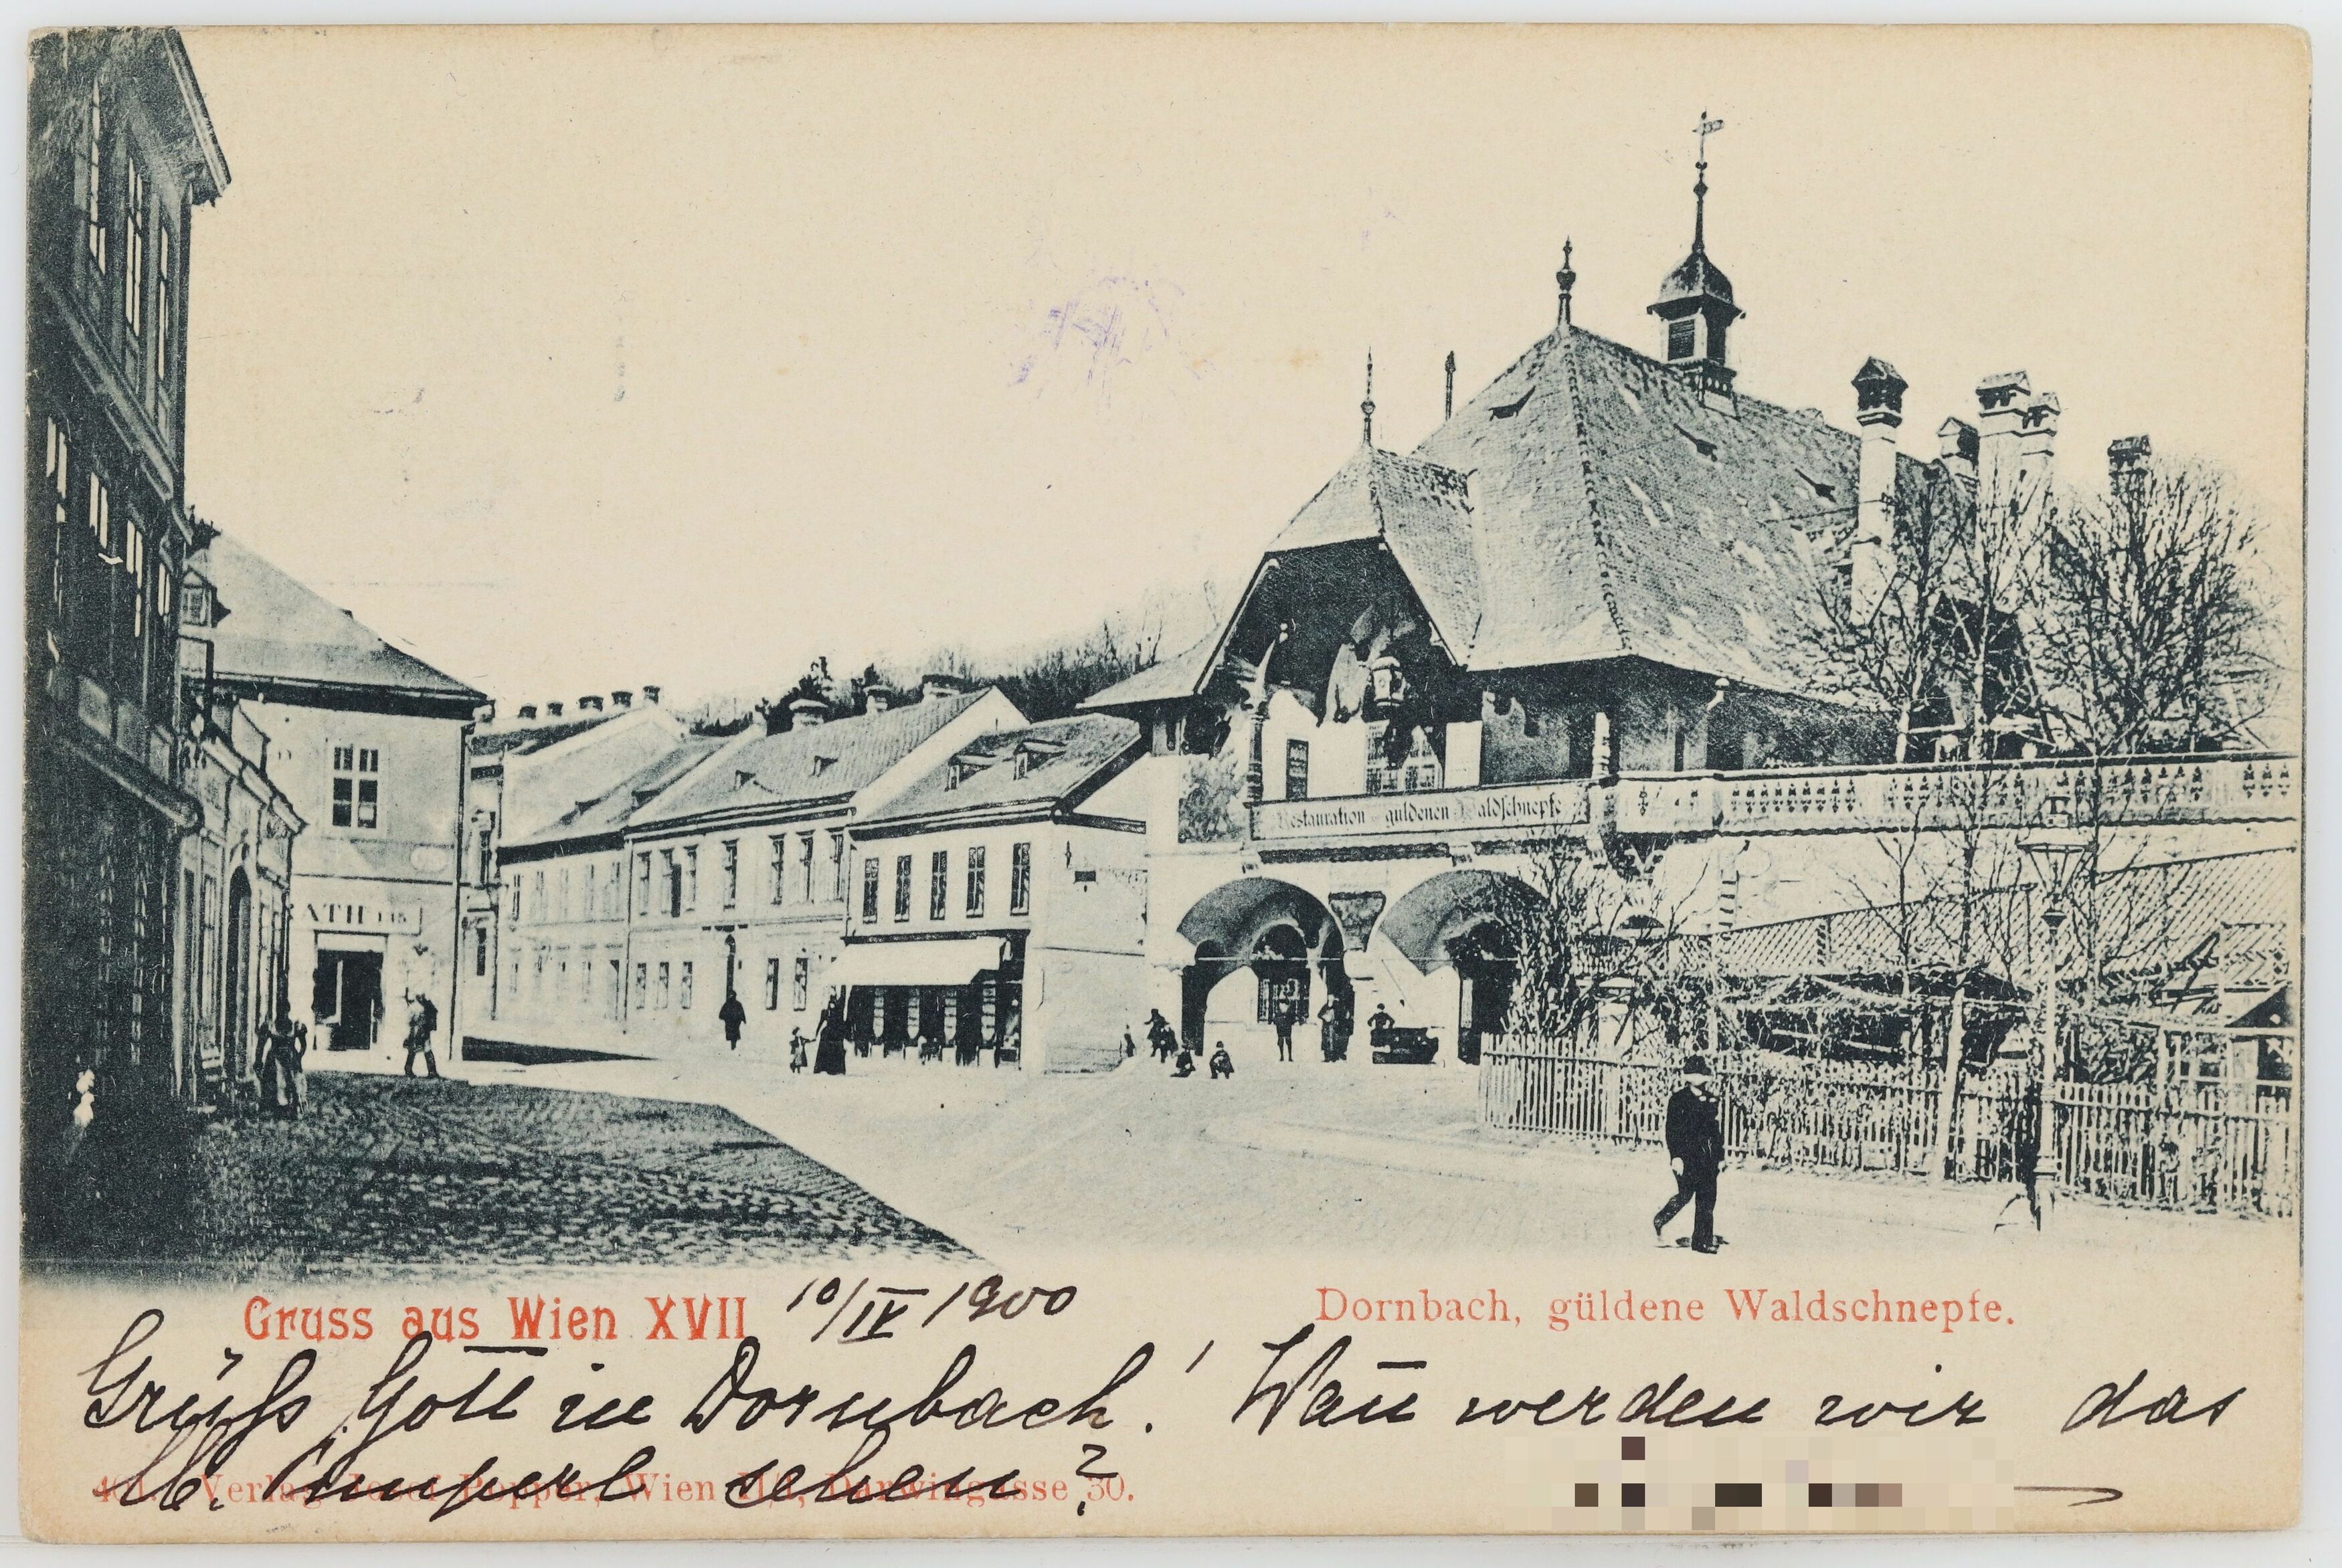 Restauration güldenen Waldschnepfe
Gruss aus Wien XVII 10/IV 1900
Dornbach, güldene Waldschnepfe.
Grüß Gott in Dornbach! Wan̄ werden wir das
lb. sehen?
Verlag Josef Popper, Wien II/1, Darwingasse 30.